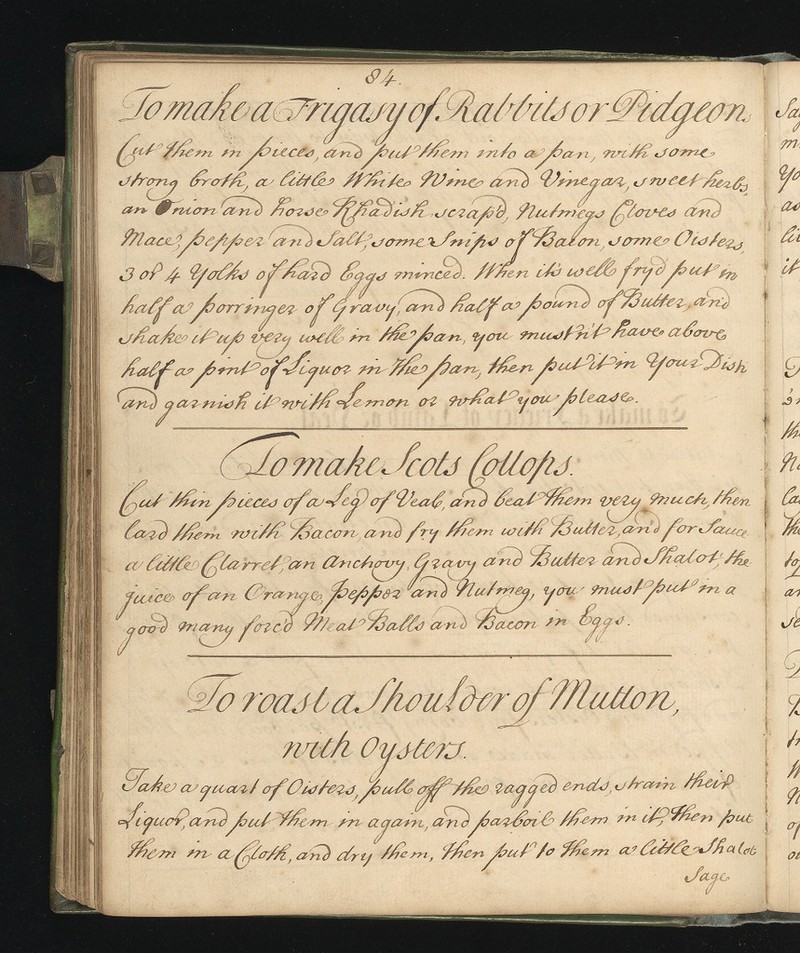 84.
To make a Frigasy of Rabbits or Pidgeons
Cut them in pieces, and put them into a pan, with some
strong broth, a little White Wine and Vinegar, sweet herbs,
an Onion and horse Rhadish scrap'd, Nutmegs Cloves and
Mace, pepper and Salt, some Snips of Bacon, some Oisters,
3 or 4 Yolks of hard Eggs minced. When it's well fry'd put in
half a porringer of Gravy, and half a pound of Butter, and
shake it up very well in the pan, you must n't have above
half a pint of Liquor in the pan, then put it in Your Dish
and garnish it with Lemon or what you please.
To make Scots Collops.
Cut thin pieces of a Leg of Veal, and beat them very much, then
lard them with Bacon, and fry them with Butter, and for Sauce
a little Clarret, an Anchovy, Gravy and Butter and Shalot, the
juice of an Orange, pepper and Nutmeg, you must put in a
good many forc'd Meat Balls and Bacon in Eggs.
To roast a Shoulder of Mutton,
with Oysters.
Take a quart of Oisters, pull off the ragged ends, strain their
Liquor, and put them in again, and parboil them in it, then put
them in a Cloth, and dry them, then put to them a little Shalot
Sage